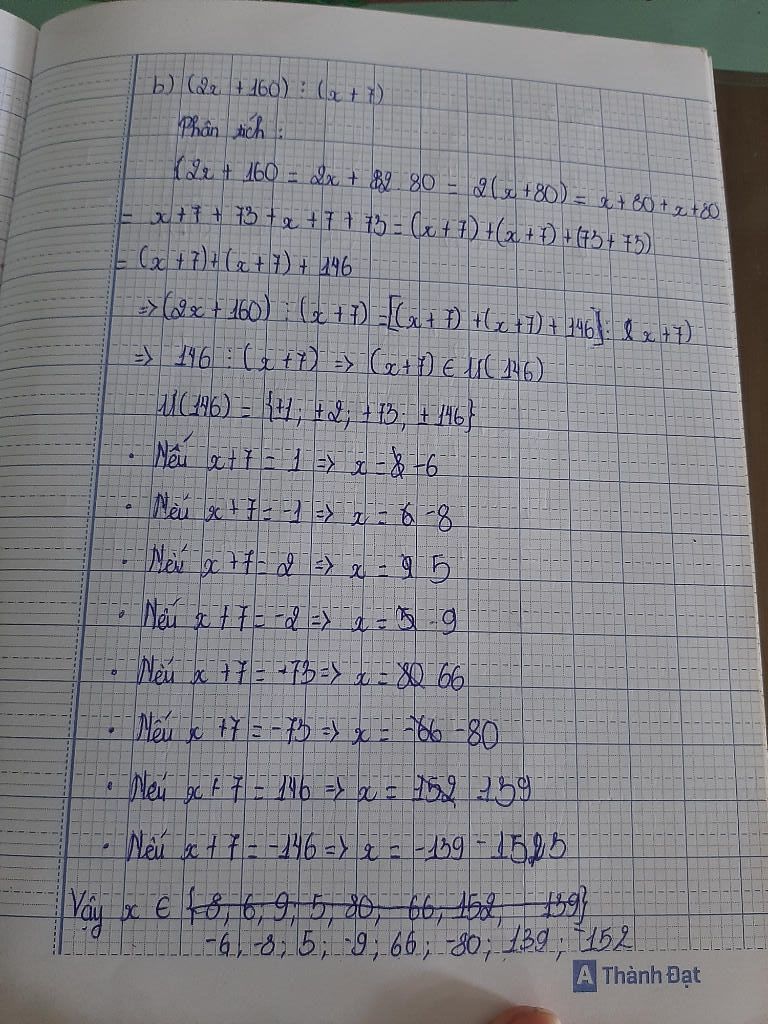 b) (2x + 160) : (x + 7)
Phân tích :
(2x + 160 = 2x + 2 . 80 = 2(x + 80) = x + 80 + x + 80
= x + 7 + 73 + x + 7 + 73 = (x + 7) + (x + 7) + (73 + 73)
= (x + 7) + (x + 7) + 146
=> (2x + 160) : (x + 7) = [(x + 7) + (x + 7) + 146] : (x + 7)
=> 146 : (x + 7) => (x + 7) ∈ Ư(146)
Ư(146) = {±1; ±2; ±73; ±146}
• Nếu x + 7 = 1 => x = -6
• Nếu x + 7 = -1 => x = -8
• Nếu x + 7 = 2 => x = 5
• Nếu x + 7 = -2 => x = -9
• Nếu x + 7 = 73 => x = 66
• Nếu x + 7 = -73 => x = -80
• Nếu x + 7 = 146 => x = 139
• Nếu x + 7 = -146 => x =
Vậy x ∈ {8, 6, 9, 5, 80, 66, 152, 139}
-6; -8; 5; -9; 66; -80; 139; -152
A Thành Đạt